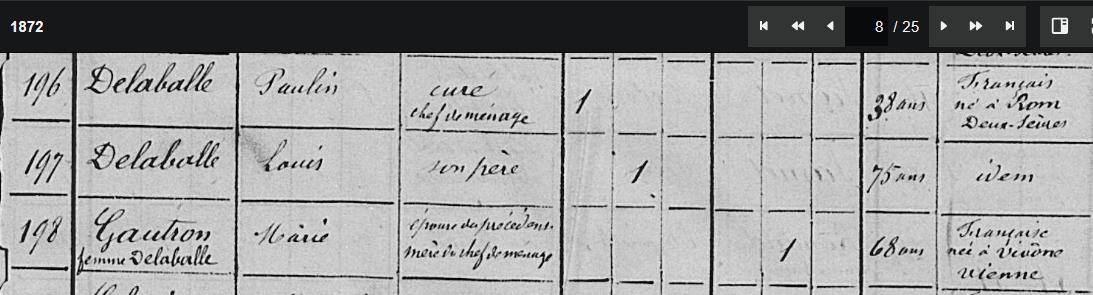 1872
8 / 25
196 Delaballe Paulin cure chef de ménage 1 38 ans Français né à Rom Deux-Sèvres
197 Delaballe Louis son père 1 75 ans idem
198 Gautron femme Delaballe Marie épouse du précédent mère du chef de ménage 1 68 ans Française née à Vivône Vienne